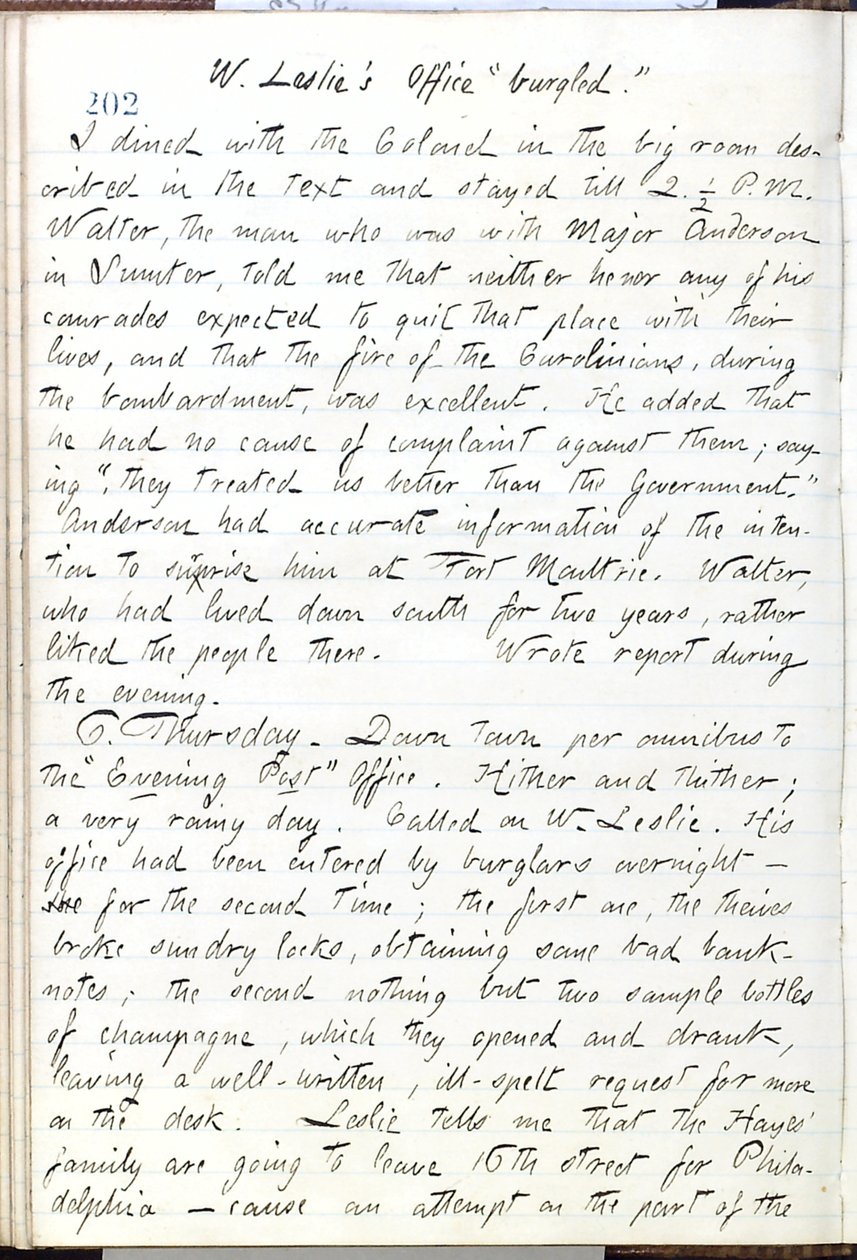 W. Leslie's Office "burgled."
202
I dined with the Colonel in the big room des-
cribed in the text and stayed till 2. ½ P.M.
Walter, the man who was with Major Anderson
in Sumter, told me that neither he nor any of his
comrades expected to quit that place with their
lives, and that the fire of the Carolinians, during
the bombardment, was excellent. He added that
he had no cause of complaint against them; say-
ing ", they treated us better than the Government."
Anderson had accurate information of the inten-
tion to surprise him at Fort Moultrie. Walter,
who had lived down south for two years, rather
liked the people there. Wrote report during
the evening.
6. Thursday. Down town per omnibus to
the "Evening Post" Office. Hither and thither;
a very rainy day. Called on W. Leslie. His
office had been entered by burglars overnight —
for the second time; the first one, the theives
broke sundry locks, obtaining some bad bank-
notes; the second nothing but two sample bottles
of champagne, which they opened and drank,
leaving a well-written, ill-spelt request for more
on the desk. Leslie tells me that the Hayes'
family are going to leave 16th street for Phila-
delphia — cause an attempt on the part of the